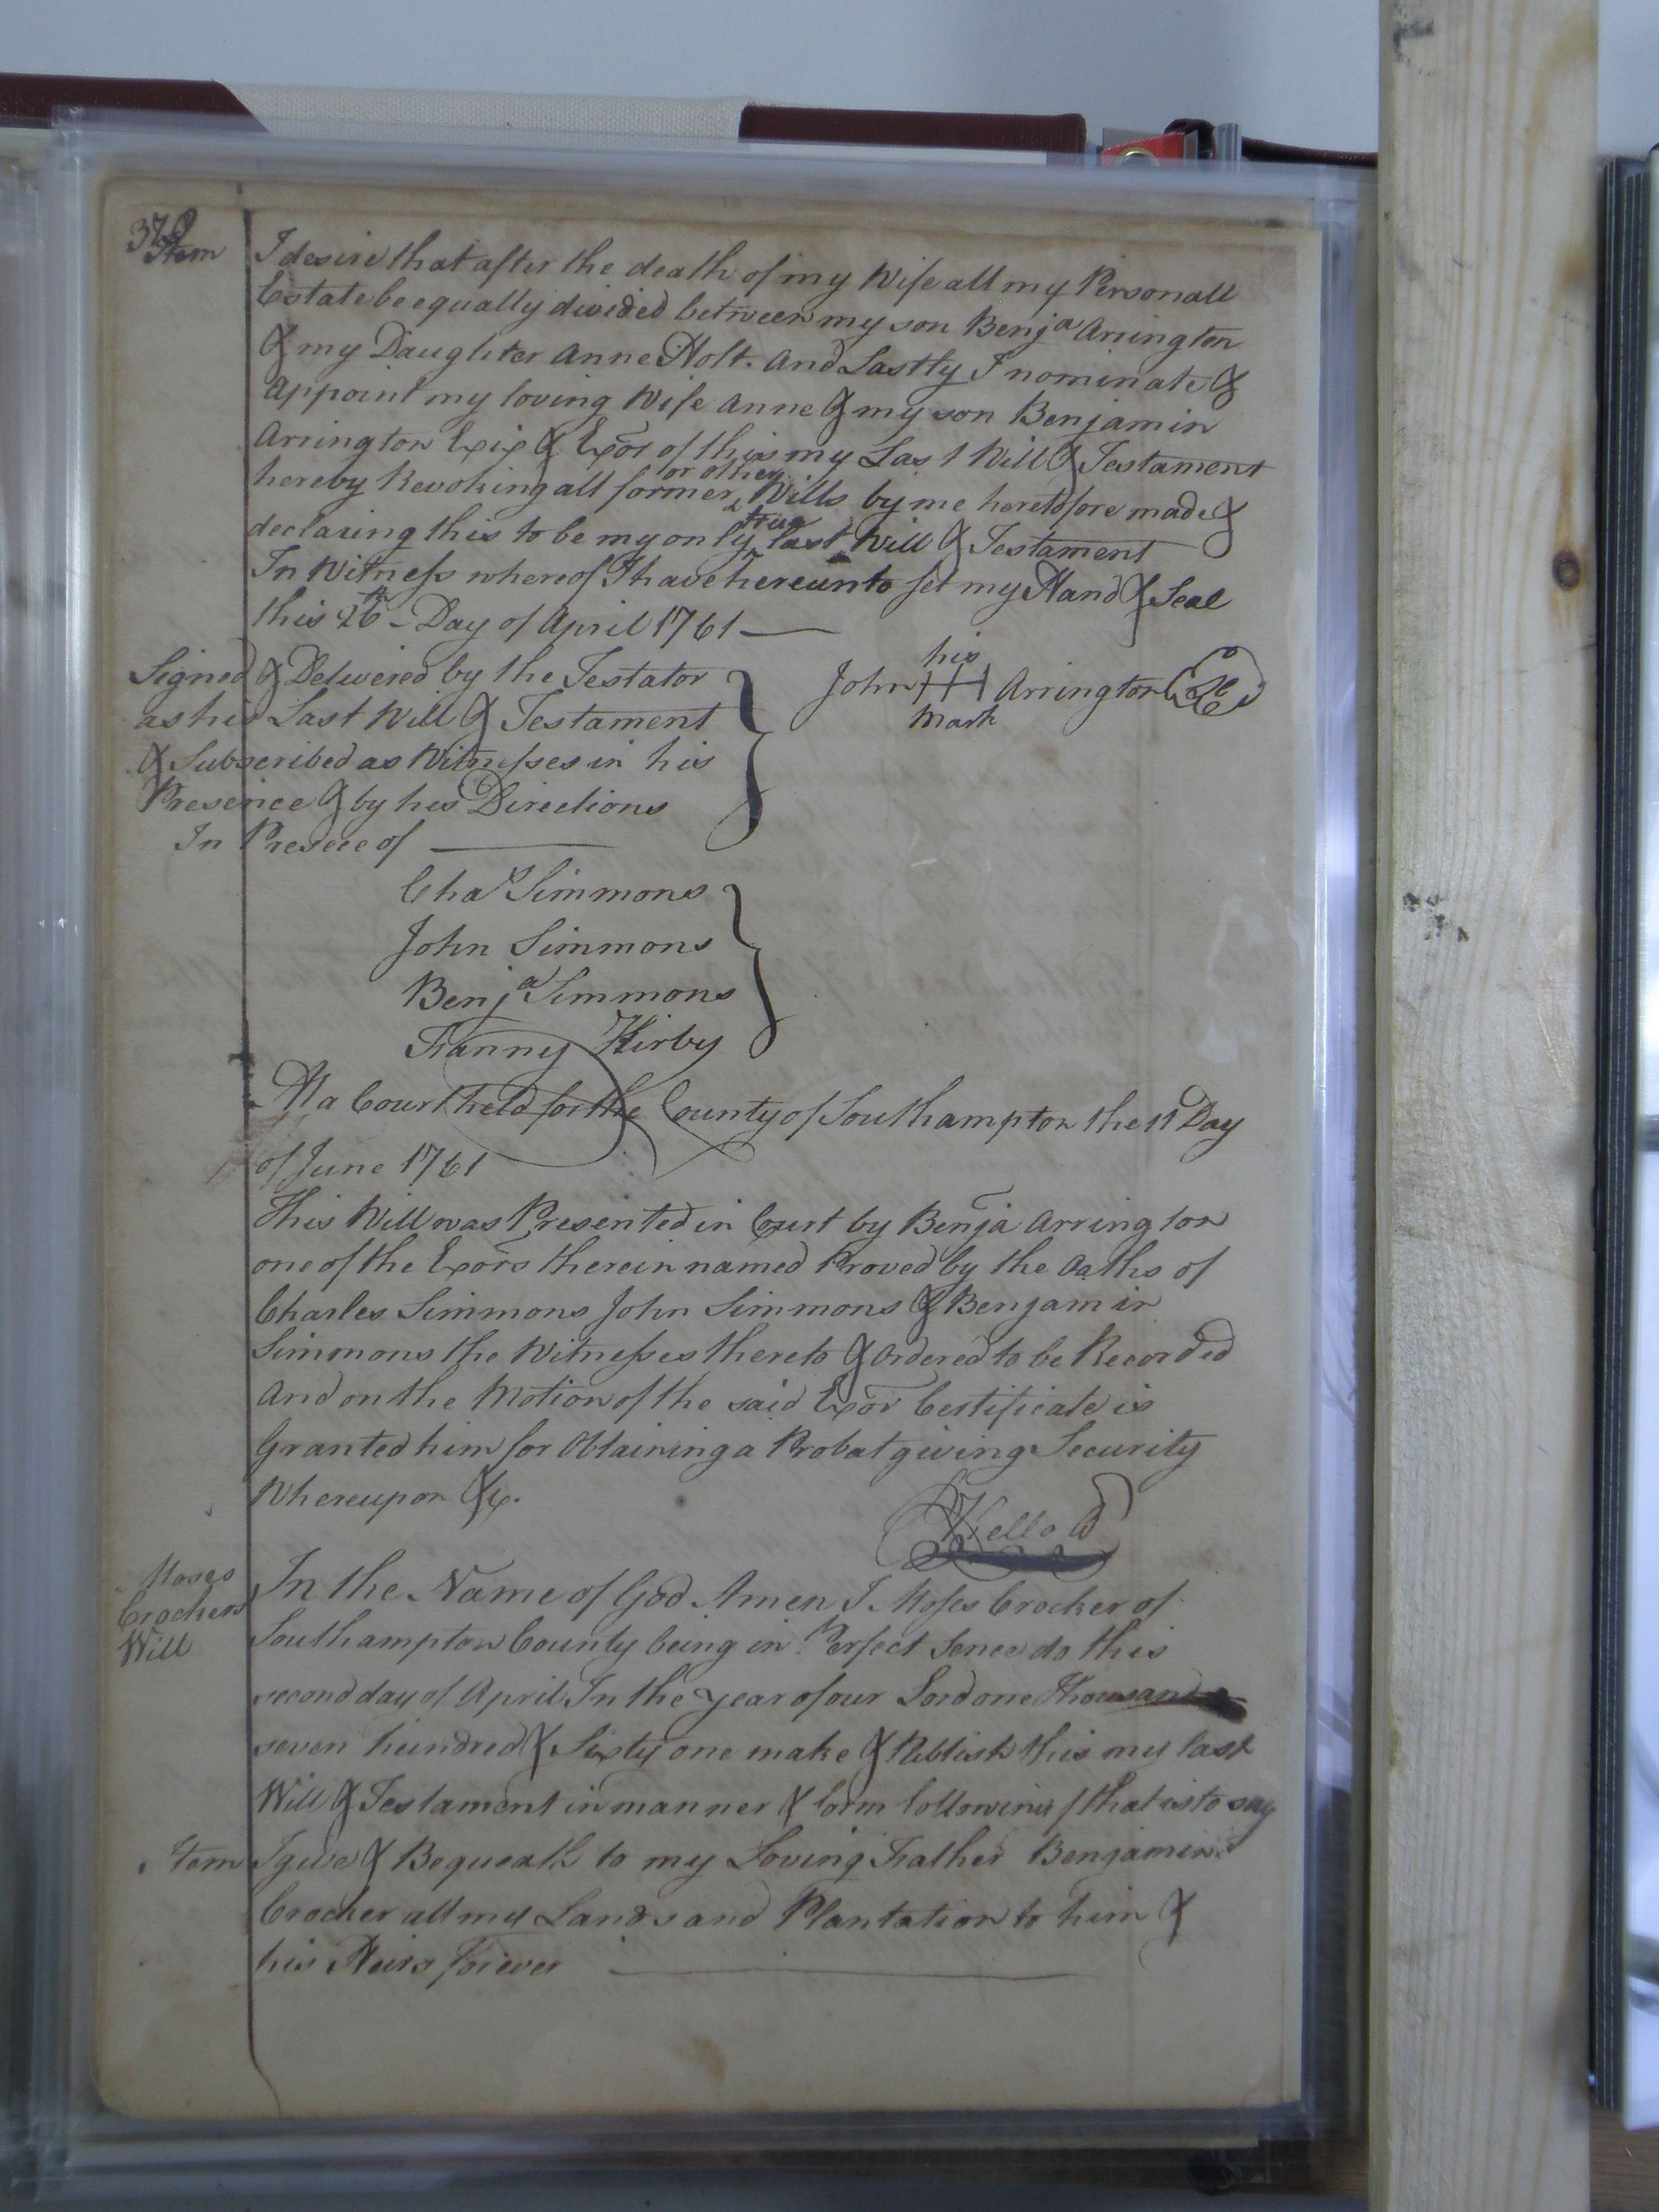 Item I desire that after the death of my Wife all my Personall
Estate be equally divided between my son Benja Arrington
& my Daughter Anne Holt. And Lastly I nominate &
Appoint my loving Wife Anne & my son Benjamin
Arrington Exix & Exor of this my Last Will & Testament
hereby Revoking all former or other Wills by me heretofore made &
declaring this to be my only & true last Will & Testament
In Witness whereof I have hereunto set my Hand & Seal
this 26th Day of April 1761
Signed & Delivered by the Testator
as his Last Will & Testament
& Subscribed as Witnesses in his
Presence & by his Directions
In Presece of
his
John H Arrington
Mark
Chas Simmons
John Simmons
Benja Simmons
Franny Kirby
At a Court held for the County of Southampton the 11 Day
of June 1761
This Will was Presented in Court by Benja Arrington
one of the Exors therein named Proved by the Oaths of
Charles Simmons John Simmons & Benjamin
Simmons the Witnesses thereto & Ordered to be Recorded
And on the Motion of the said Exor Certificate is
Granted him for Obtaining a Probat giving Security
Whereupon &c.
Kello
Moses
Crockers
Will
In the Name of God Amen I Moses Crocker of
Southampton County being in Perfect Sence do this
second day of April In the year of our Lord one Thousand
seven hundred & Sixty one make & Publish this my last
Will & Testament in manner & form following / that is to say
Item I give & Bequeath to my Loving Father Benjamin
Crocker all my Lands and Plantation to him &
his Heirs forever